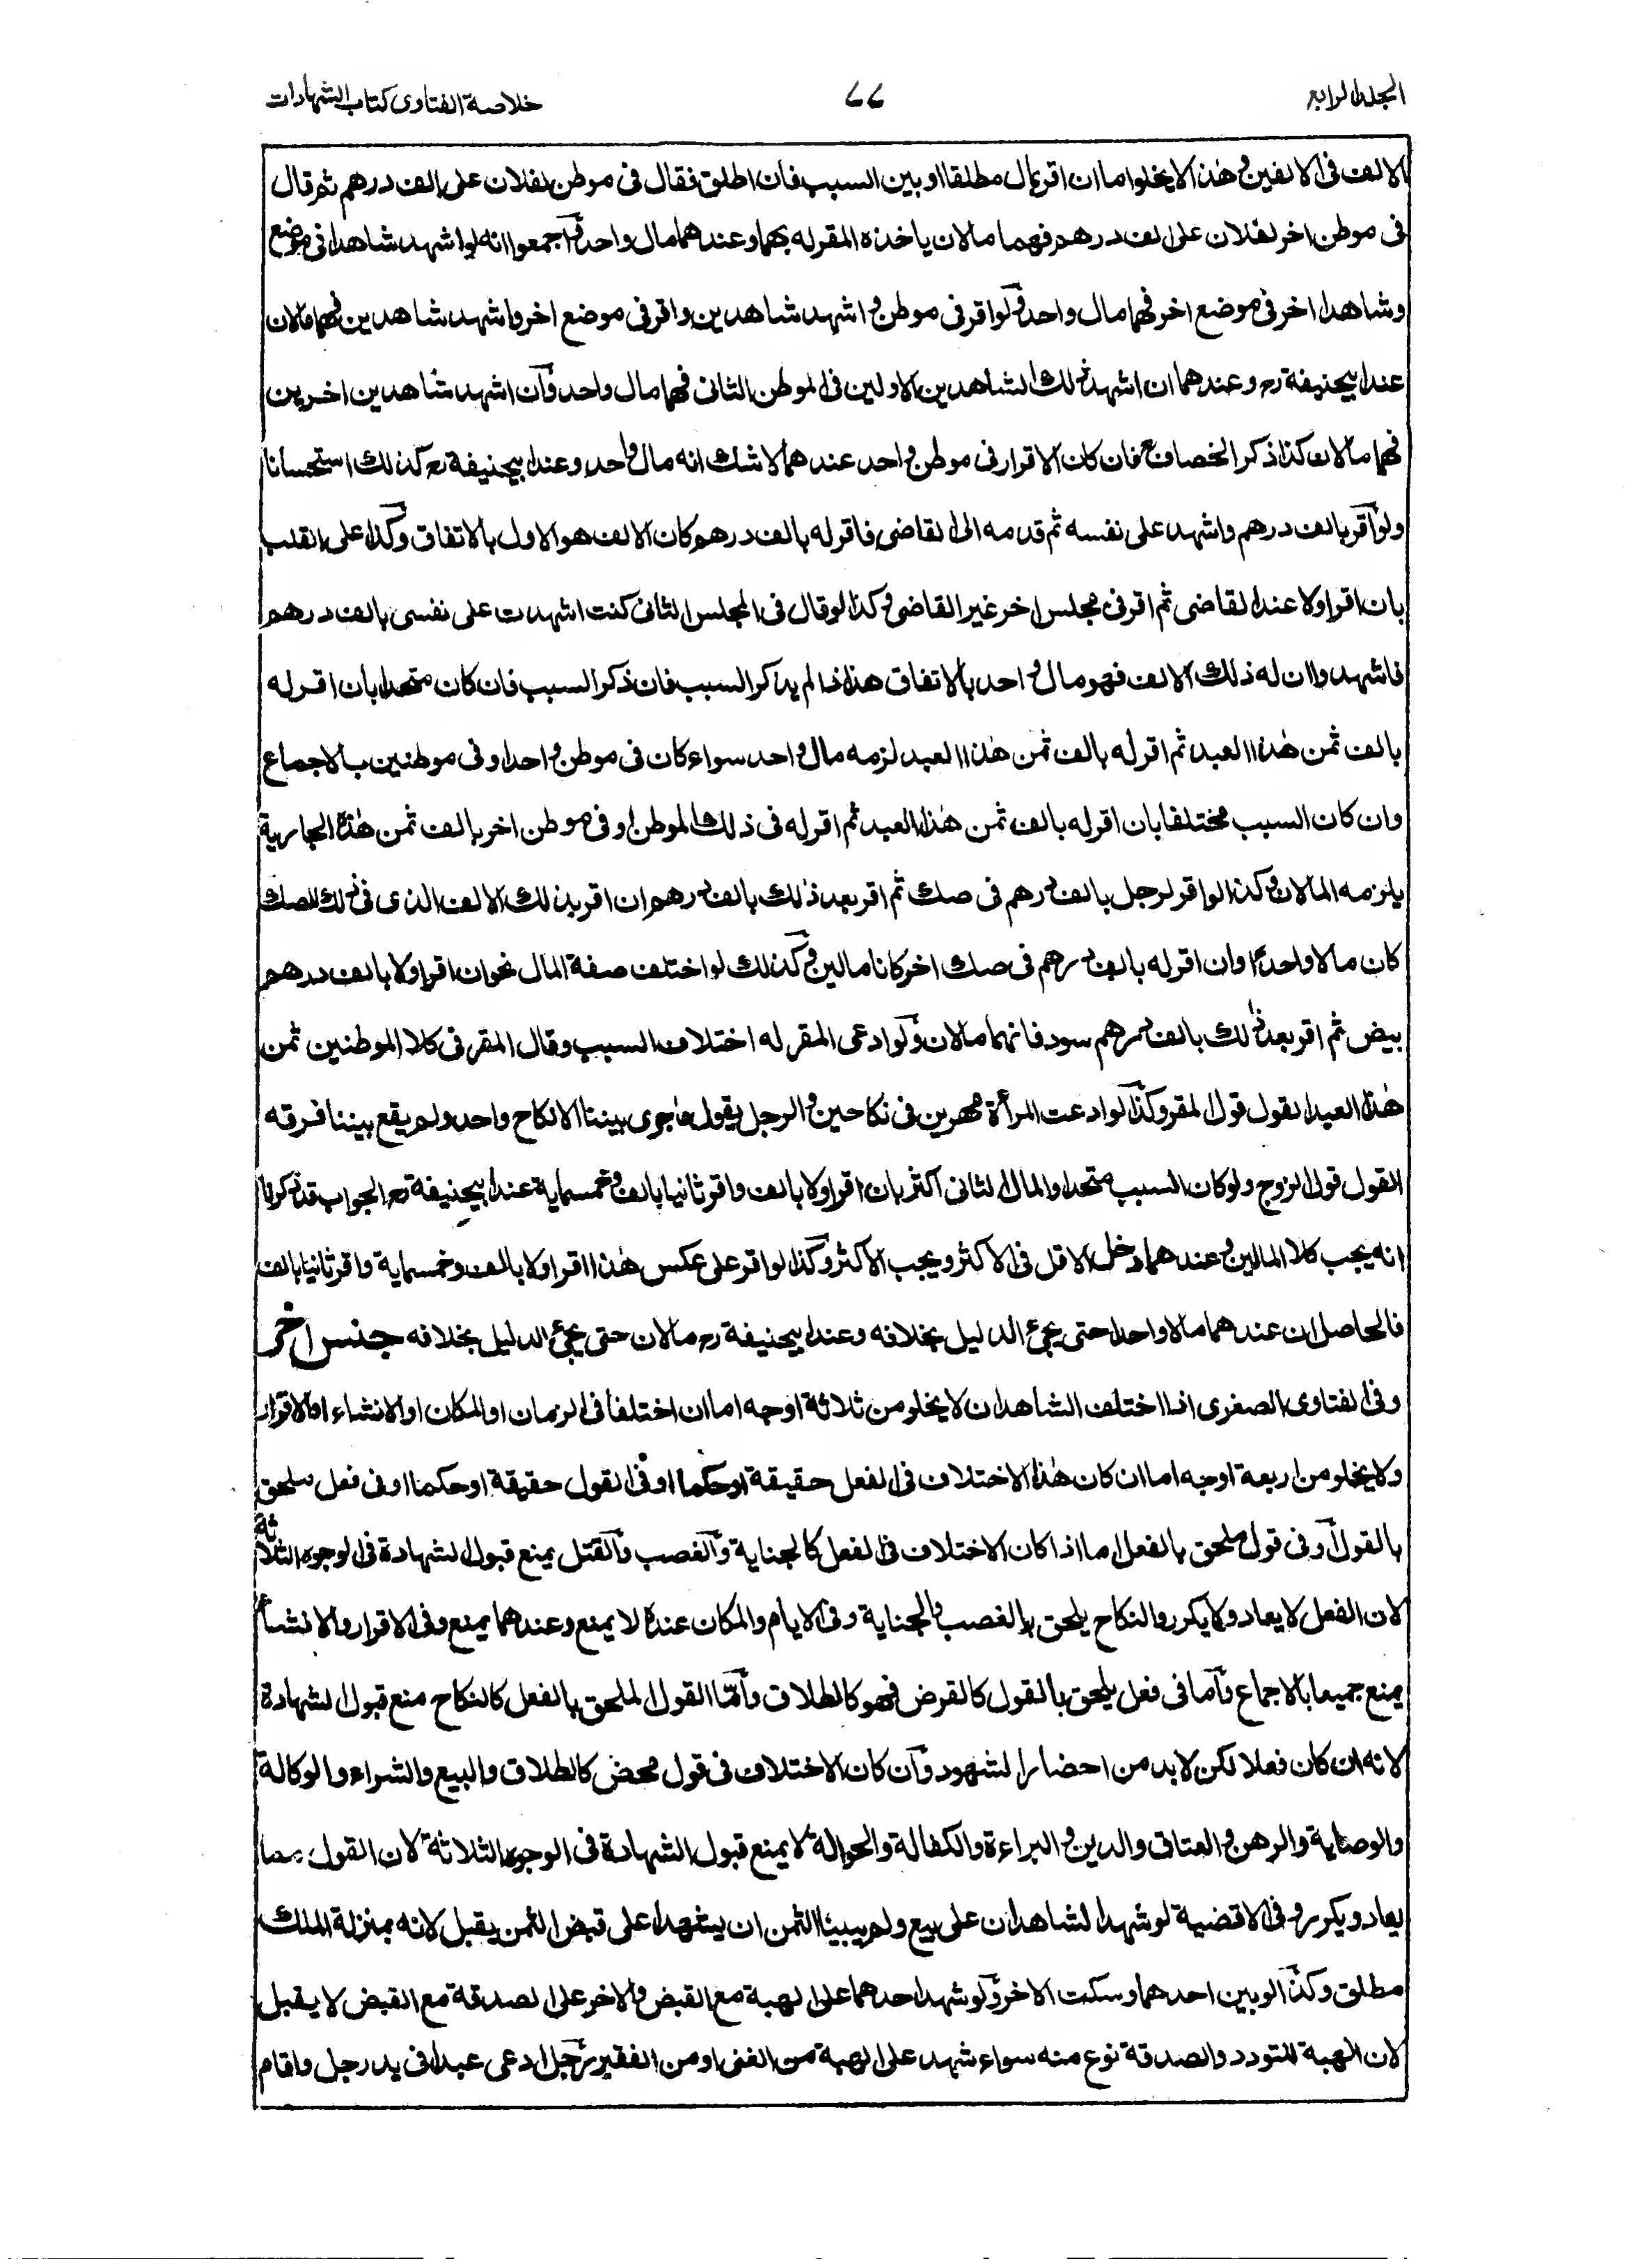 الجلد الرابع
۷۷
خلاصة الفتاوى كتاب الشهادات
الالف فى الالفين وهذا لا يخلو اما ان اقر بمال مطلقا او بين السبب فان اطلق فقال فى موطن لفلان على الف درهم ثم قال
فى موطن اخر لفلان على الف درهم فهما مالان ياخذه المقر له بهما وعندهما مال واحد و اجمعوا انه لو اشهد شاهدا فى موضع
وشاهدا اخر فى موضع اخر فهما مال واحد ولو اقر فى موطن و اشهد شاهدين واقر فى موضع اخر واشهد شاهدين فهما مالان
عند ابيحنيفة رح وعندهما ان اشهد ذلك الشاهدين الاولين فى الموطن الثانى فهما مال واحد وان اشهد شاهدين اخرين
فهما مالان كذا ذكر الخصاف فان كان الاقرار فى موطن واحد عندهما لا شك انه مال واحد وعند ابيحنيفة رح كذلك استحسانا
ولو اقر بالف درهم واشهد على نفسه ثم قدمه الى القاضى فاقر له بالف درهم كان الالف هو الاول بالاتفاق وكذا على القلب
بان اقر اولا عند القاضى ثم اقر فى مجلس اخر غير القاضى و كذا لو قال فى المجلس الثانى كنت اشهدت على نفسى بالف درهم
فاشهدوا ان له ذلك الالف فهو مال واحد بالاتفاق هذا اذا لم يذكر السبب فان ذكر السبب فان كان متحدا بان اقر له
بالف ثمن هذا العبد ثم اقر له بالف ثمن هذا العبد لزمه مال واحد سواء كان فى موطن واحد او فى موطنين بالاجماع
وان كان السبب مختلفا بان اقر له بالف ثمن هذا العبد ثم اقر له فى ذلك الموطن او فى موطن اخر بالف ثمن هذه الجارية
يلزمه المالان وكذا لو اقر لرجل بالف درهم فى صك ثم اقر بعد ذلك بالف درهم ان اقر بذلك الالف الذى فى ذلك الصك
كان مالا واحدا وان اقر له بالف درهم فى صك اخر كانا مالين وكذلك لو اختلف صفة المال نحو ان اقر اولا بالف درهم
بيض ثم اقر بعد ذلك بالف درهم سود فانهما مالان ولو ادعى المقر له اختلاف السبب وقال المقر فى كلا الموطنين ثمن
هذا العبد القول قول المقر وكذا لو ادعت المرأة مهرين فى نكاحين و الرجل يقول ماجرى بيننا الا نكاح واحد ولم يقع بيننا فرقه
القول قول الزوج ولو كان السبب متحدا والمال الثانى اكثر بان اقر اولا بالف واقر ثانيا بالف وخمسماية عند ابيحنيفة رح الجواب قد ذكرنا
انه يجب كلا المالين و عندهما دخل الاقل فى الاكثر و يجب الاكثر وكذا لو اقر على عكس هذا اقر اولا بالف وخمسماية واقر ثانيا بالف
فالحاصل ان عندهما مالا واحدا حتى يجئ الدليل بخلافه وعند ابيحنيفة رح مالان حتى يجئ الدليل بخلافه جنس اخر
وفى الفتاوى الصغرى اذا اختلف الشاهدان لا يخلو من ثلاثة اوجه اما ان اختلفا فى الزمان او المكان او الانشاء او الاقرار
ولا يخلو من اربعة اوجه اما ان كان هذا الاختلاف فى الفعل حقيقة او حكما او فى القول حقيقة او حكما او فى فعل ملحق
بالقول او فى قول ملحق بالفعل اما اذا كان الاختلاف فى الفعل كالجناية والغصب والقتل يمنع قبول الشهادة فى الوجوه الثلاثة
لان الفعل لا يعاد ولا يكرر والنكاح يلحق بالغصب والجناية وفى الايام والمكان عنده لا يمنع وعندهما يمنع وفى الاقرار والانشاء
يمنع جميعا بالاجماع واما فى فعل يلحق بالقول كالقرض فهو كالطلاق واما القول الملحق بالفعل كالنكاح منع قبول الشهادة
لانه ان كان فعلا لكن لا بد من احضار الشهود وان كان الاختلاف فى قول محض كالطلاق والبيع والشراء والوكالة
والوصاية والرهن و العتاق والدين و البراءة والكفالة والحوالة لا يمنع قبول الشهادة فى الوجوه الثلاثة لان القول مما
يعاد ويكرر وفى الاقضية لو شهد الشاهدان على بيع ولم يبينا الثمن ان يشهدا على قبض الثمن يقبل لانه بمنزلة الملك
مطلق وكذا لو بين احدهما وسكت الاخر ولو شهد احدهما على الهبة مع القبض والاخر على الصدقة مع القبض لا يقبل
لان الهبة للتودد والصدقة نوع منه سواء شهد على الهبة من الغنى او من الفقير رجل ادعى عبدا فى يد رجل واقام